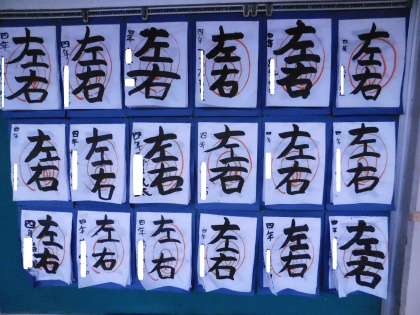 四年 左右
四年 左右
左右
四年 左右
四年 左右
四年 左右
四年 左右
四年 左右
四年 左右
四年 左右
四年 左右
四年 左右
四年 左右
四年 左右
四年 左右
四年 左右
四年 左右
左右